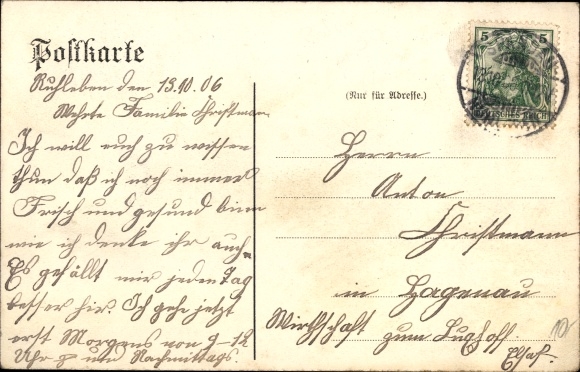 Postkarte
Ruhleben den 13.10.06
Wehrte Familie Christmann
Ich will euch zu wissen
thun daß ich noch immer
Frisch und gesund binn
wie ich denke ihr auch.
Es gefällt mir jeden Tag
besser hir. Ich gehe jetzt
erst Morgens von 9-12
Uhr und Nachmittags.
(Nur für Adresse.)
Herrn
Anton
Christmann
in Hagenau
Wirthschaft zum
Elsaß.
5 5
DEUTSCHES REICH
10